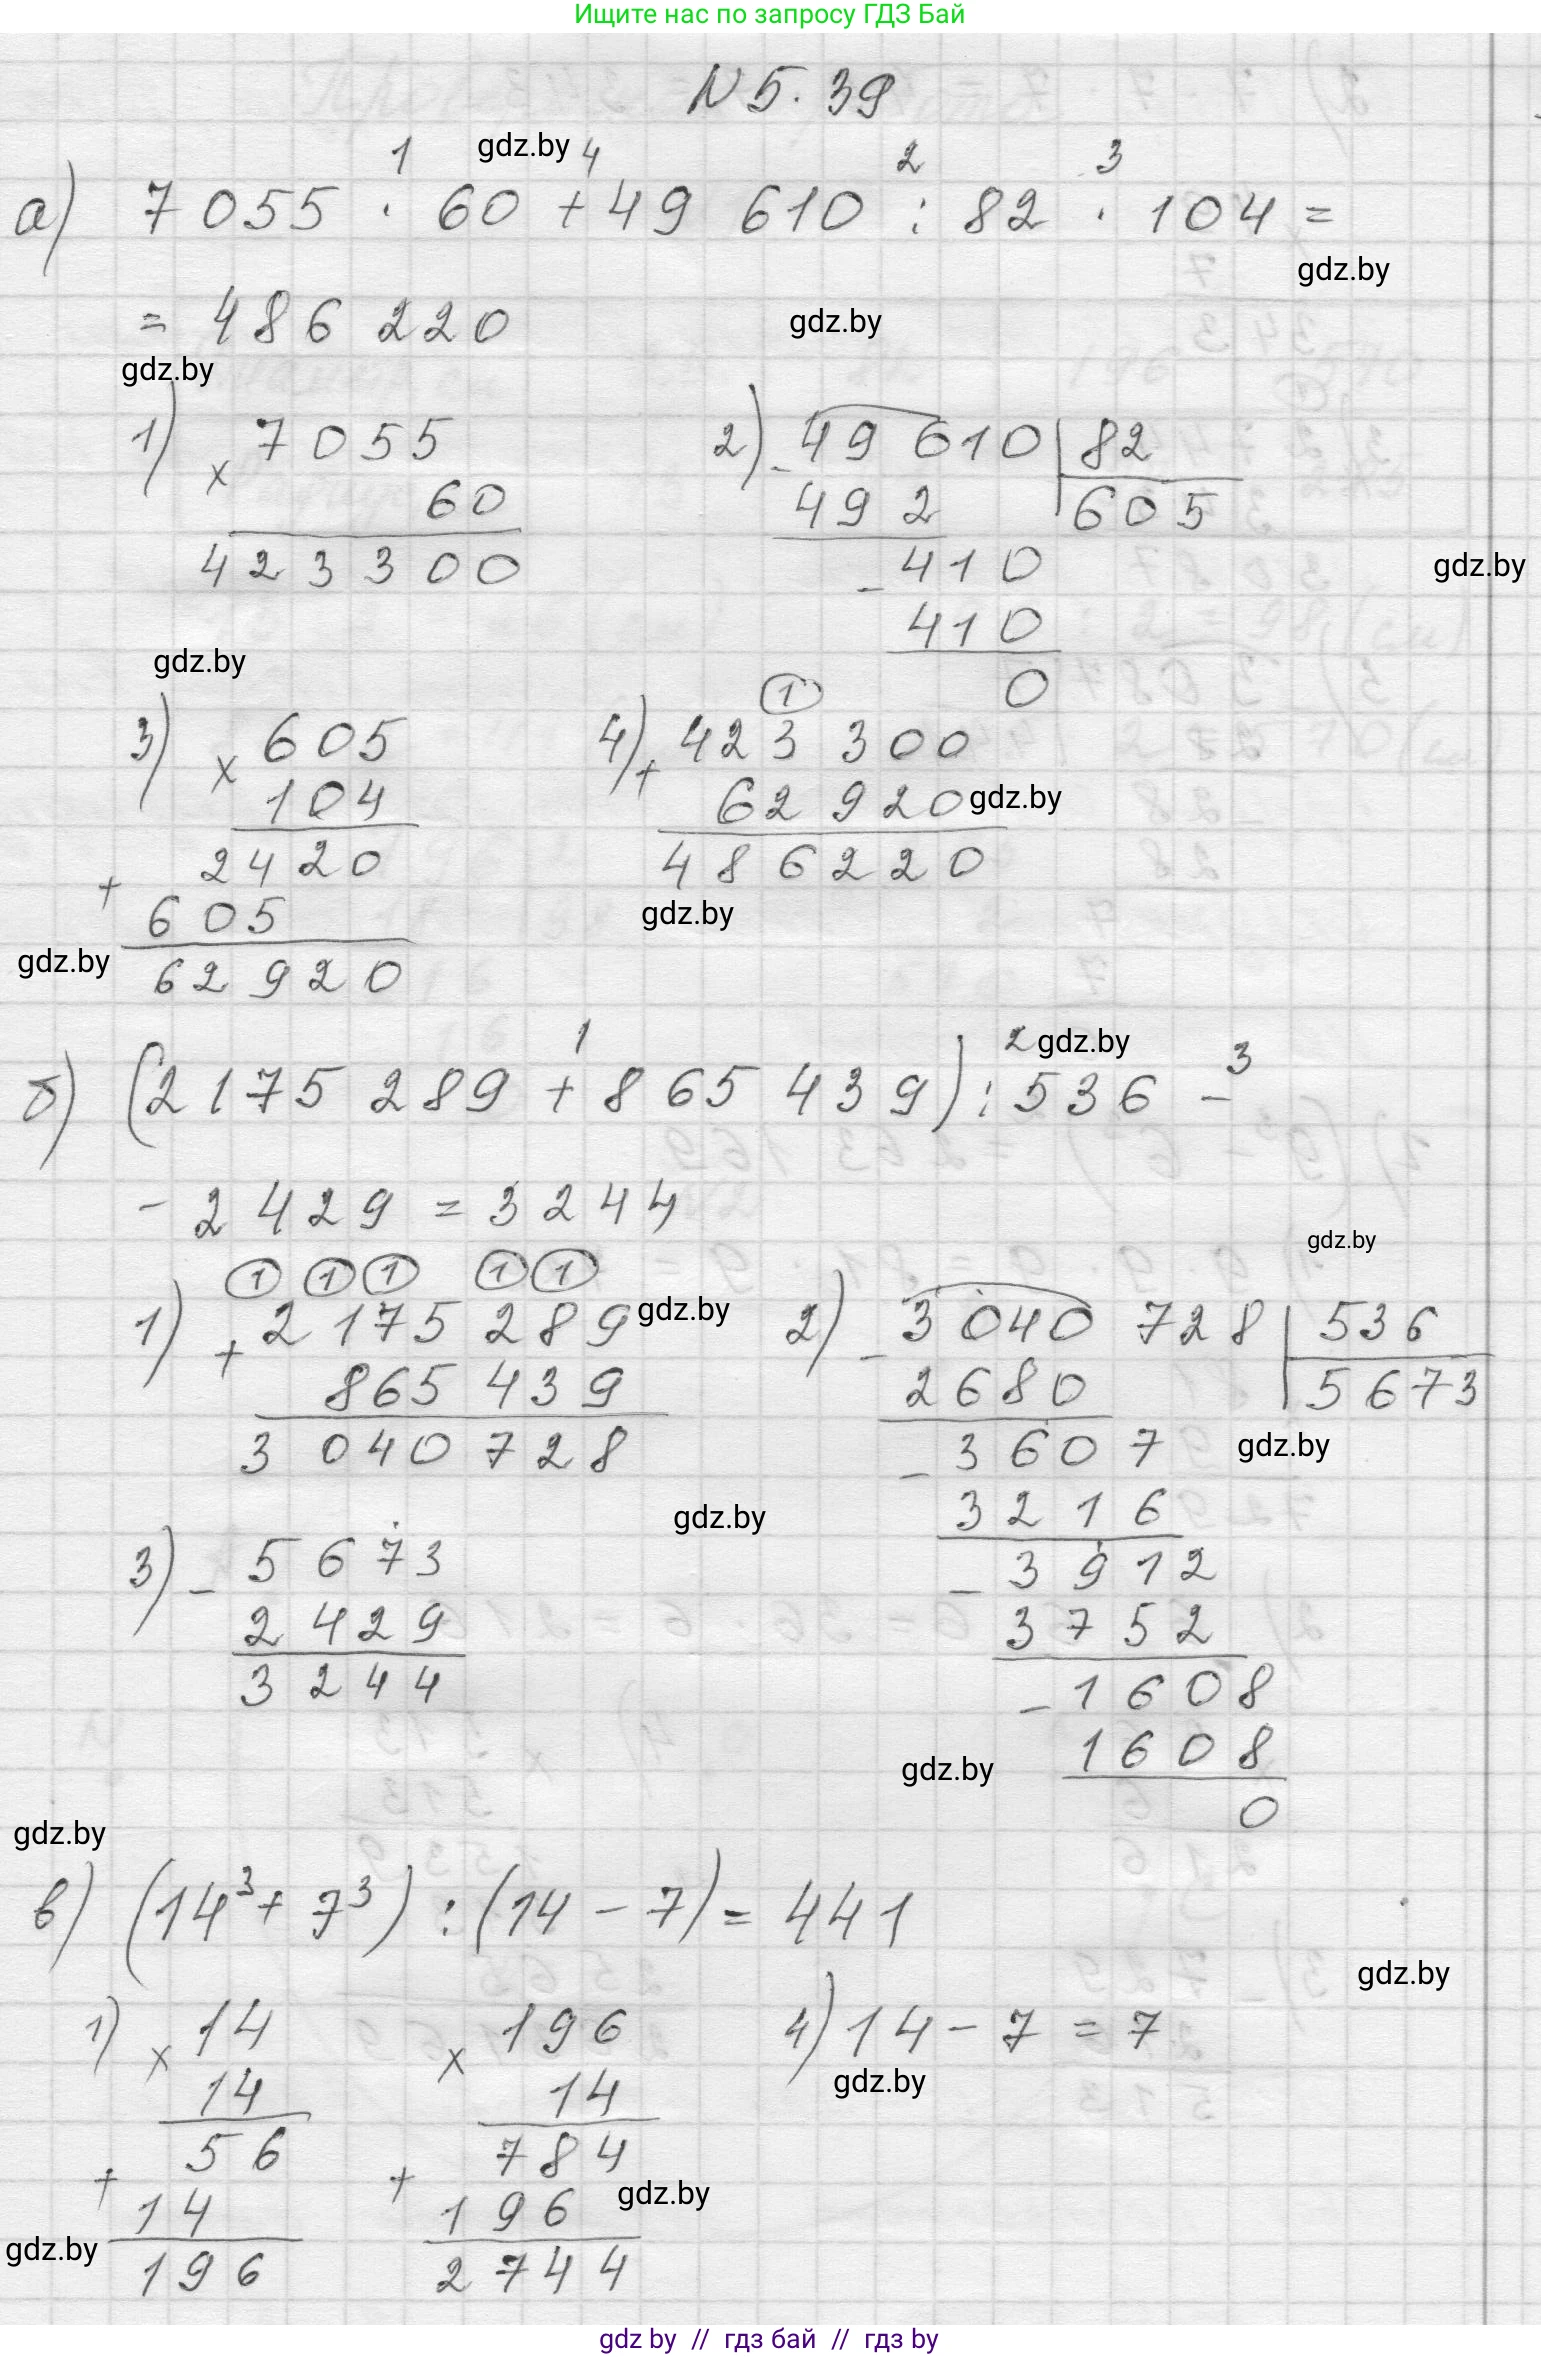 Ищите нас по запросу ГДЗ Бай
N 5. 39
gdz.by
1 4 2 3
а) 7055 · 60 + 49 610 : 82 · 104 =
gdz.by
= 486 220
gdz.by
gdz.by
1) × 7055
60
423 300
2) - 49 610 | 82
492 605
- 410
410
0
gdz.by
gdz.by
3) × 605
104
+ 2420
605
62 920
4) 1
+ 423 300
62 920
486220
gdz.by
gdz.by
gdz.by
1 2 3
gdz.by
б) (2 175 289 + 865 439) : 536 -
- 2 429 = 3 244
gdz.by
1 1 1 1 1
1) + 2 175 289
865 439
3 040 728
gdz.by
2) - 3 040 728 | 536
2680 5673
- 3607
3216
- 3912
3752
- 1608
1608
0
gdz.by
gdz.by
3) - 5673
2429
3244
gdz.by
gdz.by
в) (14³ + 7³) : (14 - 7) = 441
gdz.by
1) × 14
14
+ 56
14
196
× 196
14
+ 784
196
2744
4) 14 - 7 = 7
gdz.by
gdz.by
gdz.by
gdz by // гдз бай // гдз by